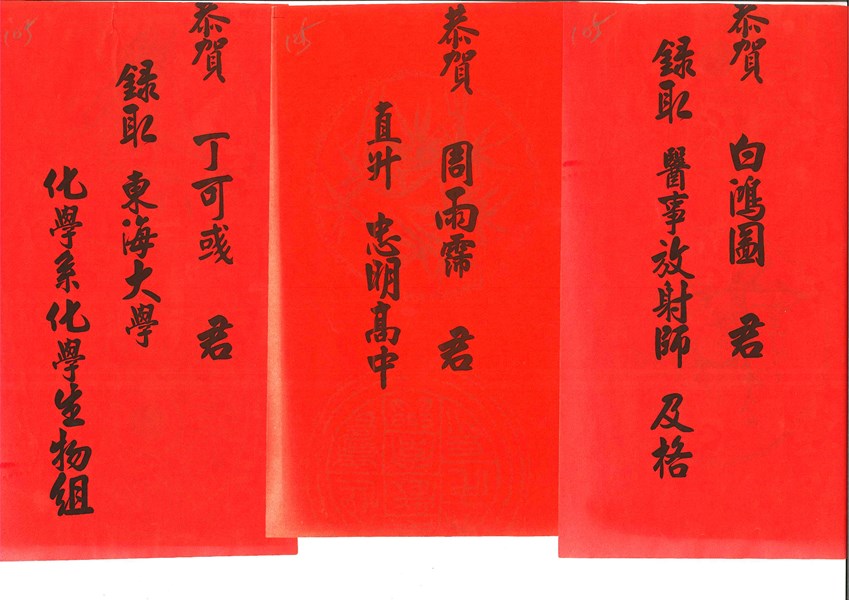 105
恭賀 白鴻圖 君
錄取 醫事放射師 及格
105
恭賀 周雨霈 君
直升 忠明高中
105
恭賀 丁可彧 君
錄取 東海大學
化學系化學生物組